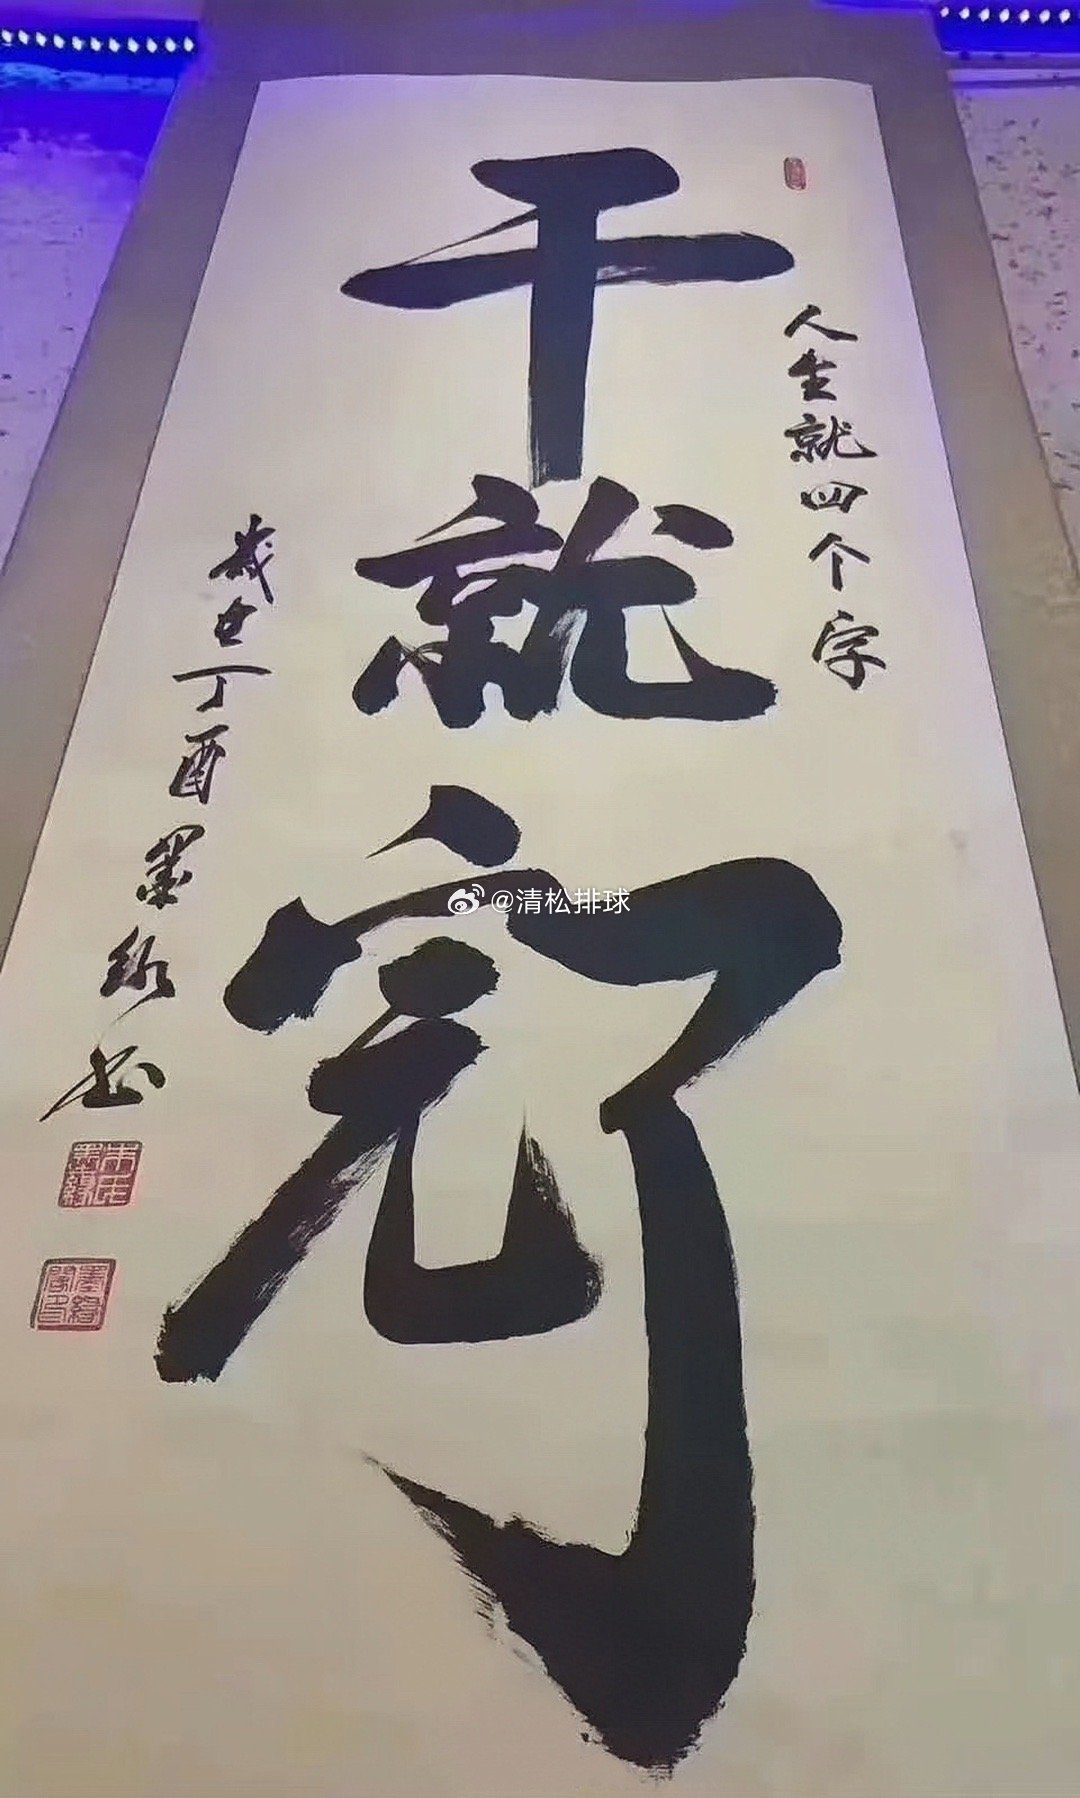 人生就四个字
干就完了
岁在丁酉墨缘书
@清松排球